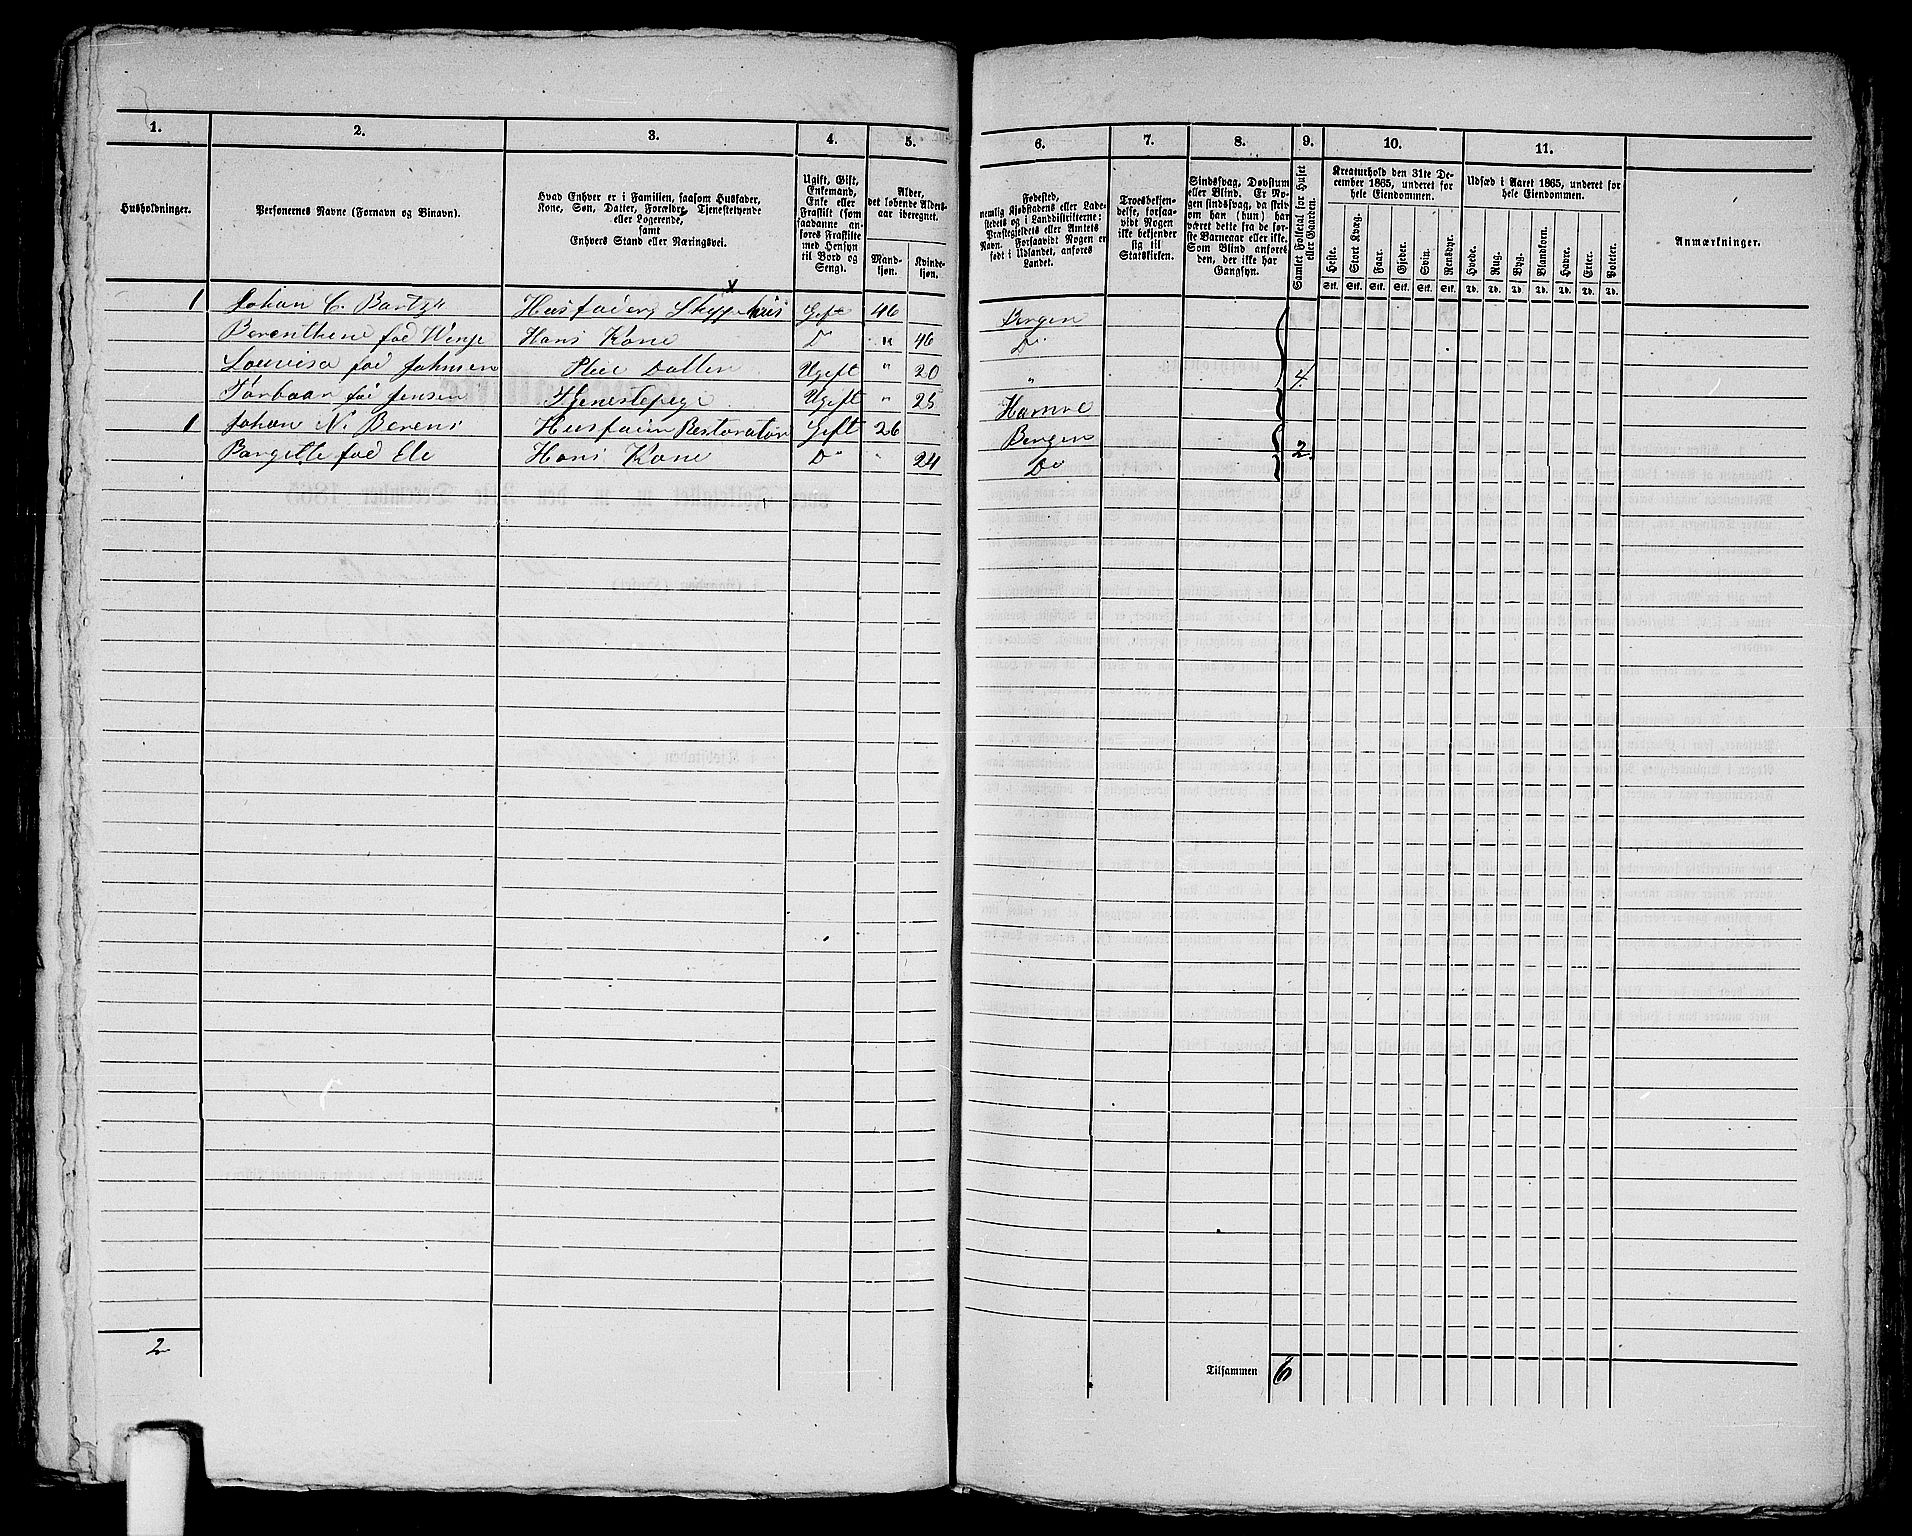 1. 2. 3. 4. 5. 6. 7. 8. 9. 10. 11.
Husholdninger.
Personernes Navne (Fornavn og Binavn).
Hvad Enhver er i Familien, saasom Husfader,
Kone, Søn, Datter, Forældre, Tjenestetyende
eller Logerende,
samt
Enhvers Stand eller Næringsvei.
Ugift, Gift,
Enkemand,
Enke eller
Fraskilt (som
saadanne an-
føres Fraskilte
med Hensyn
til Bord og
Seng).
Alder,
det løbende Alders-
aar iberegnet.
Mand-
kjøn.
Kvinde-
kjøn.
Fødested,
nemlig Kjøbstadens eller Lade-
stedets og i Landdistrikterne:
Præstegjeldets eller Amtets
Navn. Forsaavidt Nogen er
født i Udlandet, anføres
Landet.
Troesbekjen-
delse, forsaa-
vidt Nogen
ikke bekjender
sig til
Statskirken.
Sindssvag, Døvstum
eller Blind. Er No-
gen sindssvag, da skriv
om han (hun) har
været dette fra de før-
ste Barneaar eller ikke.
Som Blind anføres
den, der ikke har
Gangsyn.
Samlet Folketal for Huset
eller Gaarden.
Kreaturhold den 31te De-
cember 1865, underet for
hele Eiendommen.
Heste. Stort Kvæg. Faar. Gjeder. Svin. Rensdyr.
Stk. Stk. Stk. Stk. Stk. Stk.
Udsæd i Aaret 1865, underet for
hele Eiendommen.
Hvede. Rug. Byg. Blandkorn. Havre. Erter. Poteter.
Td. Td. Td. Td. Td. Td. Td.
Anmærkninger.
1 Johan C. Husfader Gift 46 Bergen
Berenthene fød Hans Kone D " 46 D°
Lowisa fød Pleie Datter Ugift " 20 " 4
fød Jensen Ugift " 25
1 Johan N. Berens Restoratør Gift 26 Bergen
fød Ele Hans Kone D° " 24 D° 2
2
Tilsammen 6